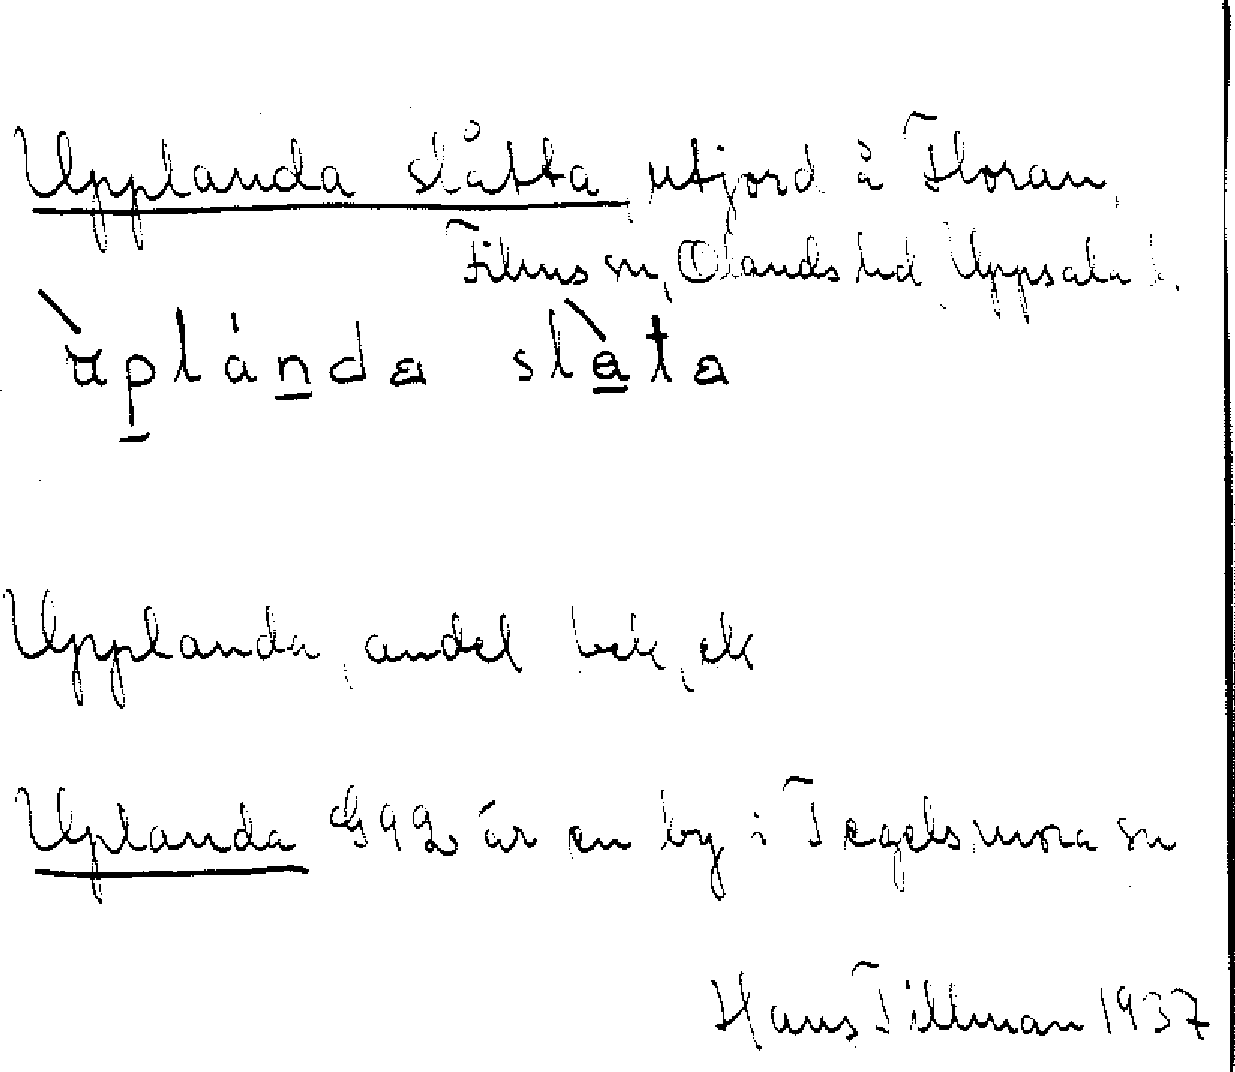 Upplanda slåtta, utjord å Floran,
Films sn, Olands hd, Uppsala l.
ùplánda slàta
Upplanda, andel bek, ek
Uplanda G92 är en by i Tegelsmora sn
Hans Tillman 1937